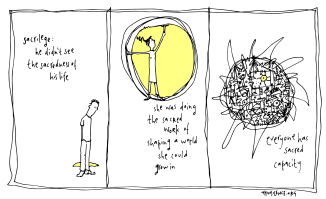 sacrilege:
he didn't see
the sacredness of
his life
she was doing
the sacred
work of
shaping a world
she could
grow in
everyone has
sacred
capacity